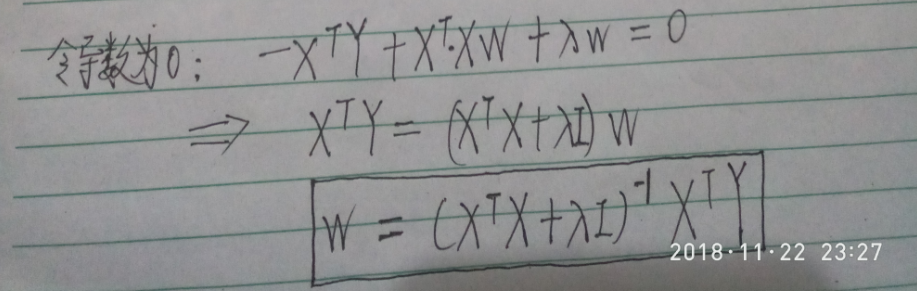 令导数为0: -XᵀY + Xᵀ·XW + λW = 0
⇒ XᵀY = (XᵀX + λI) W
W = (XᵀX + λI)⁻¹ XᵀY
2018·11·22 23:27